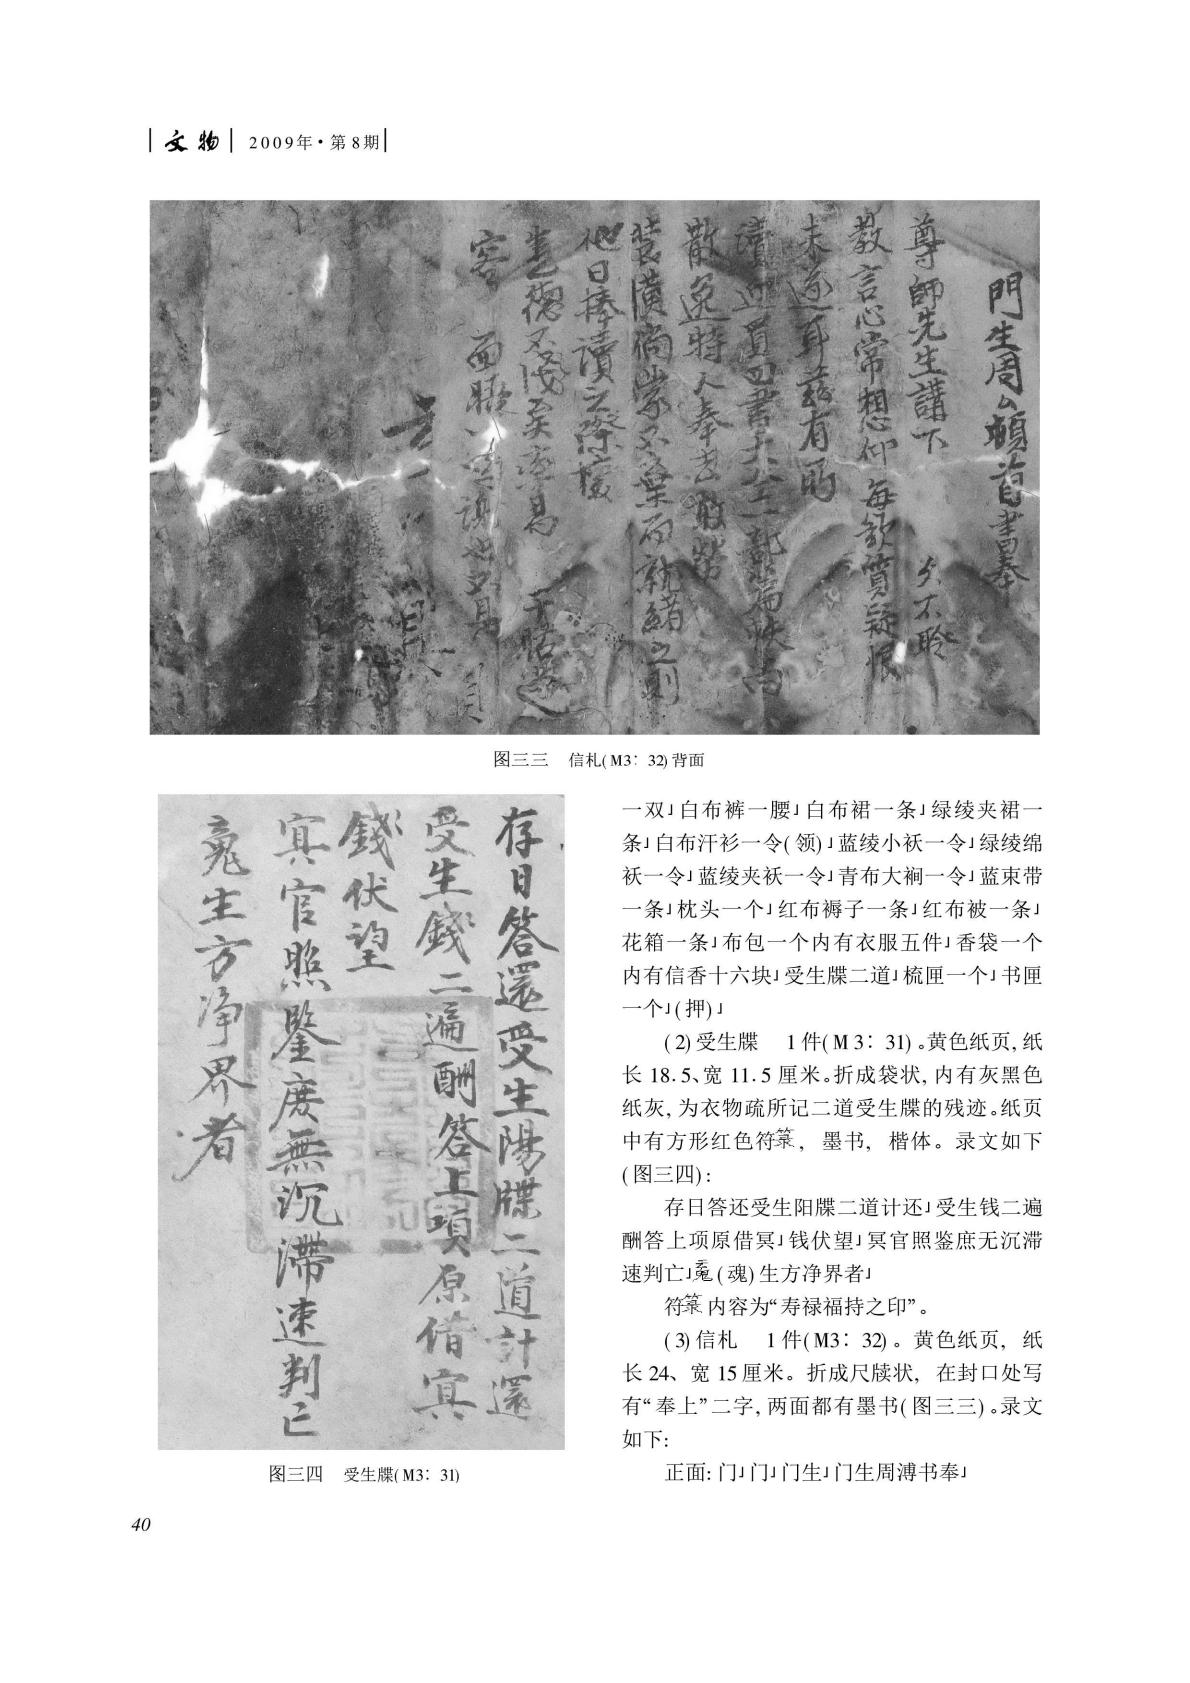 文物 2009年·第8期
門生周 頓首書奉
尊師先生講下 久不聆
教言心常想仰 每欲質疑恨
未遂耳兹有所
讀 四書大全一部篇帙尚
散逸特 奉去敢勞
装潢倘蒙不棄而就緒之則
他日捧讀之際
德不淺矣
容 面 謝
图三三 信札(M3:32)背面
存日答還受生陽牒二道計還
受生錢二遍酬答上項原借冥
錢伏望
冥官照鑒庶無沉滯速判亡
生方淨界者
图三四 受生牒(M3:31)
一双」白布裤一腰」白布裙一条」绿绫夹裙一
条」白布汗衫一令(领)」蓝绫小袄一令」绿绫绵
袄一令」蓝绫夹袄一令」青布大裥一令」蓝束带
一条」枕头一个」红布褥子一条」红布被一条」
花箱一条」布包一个内有衣服五件」香袋一个
内有信香十六块」受生牒二道」梳匣一个」书匣
一个」(押)」
(2)受生牒 1件(M3:31)。黄色纸页,纸
长18.5、宽11.5厘米。折成袋状,内有灰黑色
纸灰,为衣物疏所记二道受生牒的残迹。纸页
中有方形红色符箓,墨书,楷体。录文如下
(图三四):
存日答还受生阳牒二道计还」受生钱二遍
酬答上项原借冥」钱伏望」冥官照鉴庶无沉滞
速判亡」(魂)生方净界者」
符箓内容为“寿禄福持之印”。
(3)信札 1件(M3:32)。黄色纸页,纸
长24、宽15厘米。折成尺牍状,在封口处写
有“奉上”二字,两面都有墨书(图三三)。录文
如下:
正面:门」门」门生」门生周溥书奉」
40